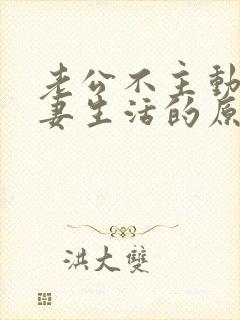 老公不主動
妻生活的原
洪大雙